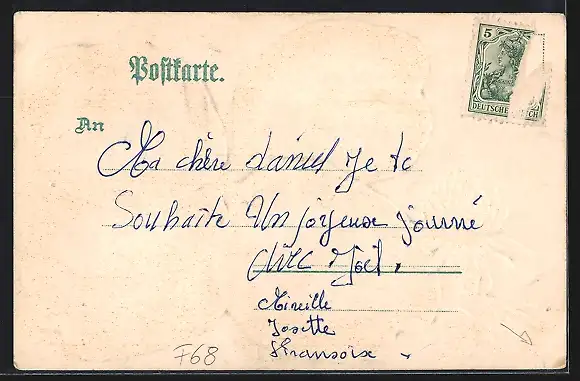 Postkarte.
5
DEUTSCHES REICH
An
Ma chère daniel Je te
Souhaite Un joyeuse journé
avec Joël.
Mireille
Josette
Fransoise
F68